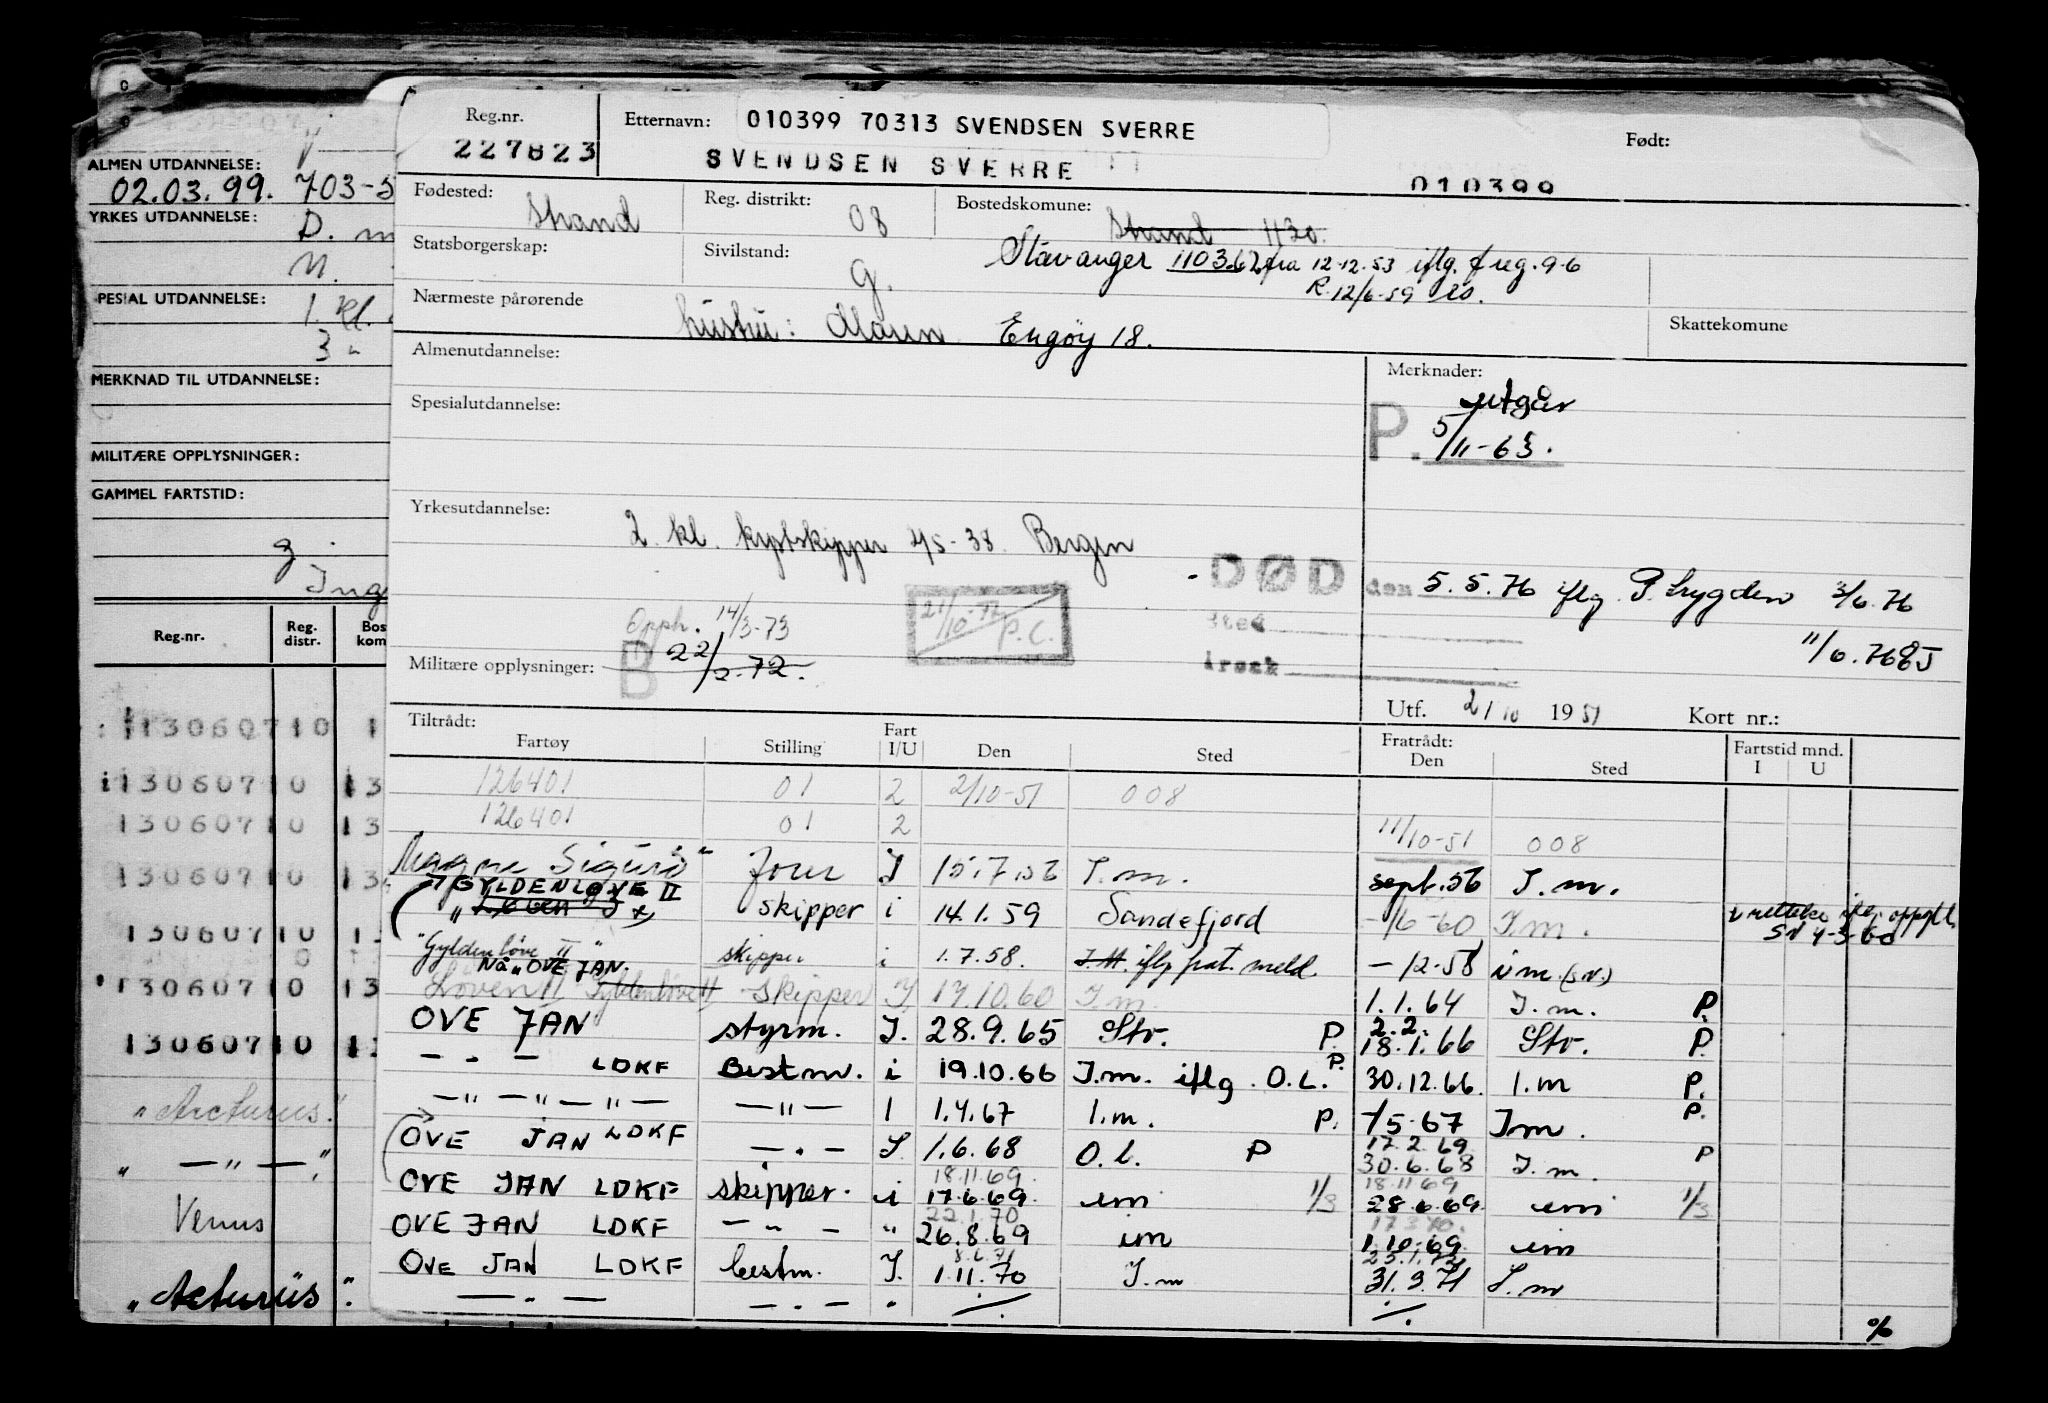 ALMEN UTDANNELSE:
02.03.99. 703-5
YRKES UTDANNELSE:
D. m
N.
PESIAL UTDANNELSE:
1. kl.
3 "
MERKNAD TIL UTDANNELSE:
MILITÆRE OPPLYSNINGER:
GAMMEL FARTSTID:
g.
Ing
Reg.nr. Reg. distr. Bos kom
13060710 1
13060710 13
13060710 13
13060710 13
13060710 1
13060710 13
13060710 1
"Arcturus."
" — " — "
Venus
"Arcturus".
Reg.nr.
227823
Etternavn: 010399 70313 SVENDSEN SVERRE
SVENDSEN SVERRE
Født:
010399
Fødested: Strand
Reg. distrikt: 08
Bostedskomune: Strand 1130.
Stavanger 1103.62 fra 12-12.53 iflg. freg. 9-6
R. 12/6-59
Statsborgerskap:
Sivilstand: g.
Nærmeste pårørende
hustru: Maren Engøy 18.
Skattekomune
Almenutdannelse:
Merknader:
utgår
P. 5/11-63.
Spesialutdannelse:
Yrkesutdannelse:
2. kl. kystskipper 4/5-38. Bergen
DØD den 5.5.76 iflg. P. trygden 3/6.76
Sted
Årsak
11/6.76
Opph. 14/3-73
21/10-72 P.C.
Militære opplysninger: B 22/2-72.
Utf. 2/10 1951 Kort nr.:
Tiltrådt:
Fartøy Stilling Fart I/U Den Sted
Fratrådt:
Den Sted
Fartstid mnd.
I U
126401 01 2 2/10-51 008
126401 01 2 11/10-51 008
Magne Sigurd" I 15.7.56 I.m. sept.56 I.m.
GYLDENLØVE II
" skipper i 14.1.59 Sandefjord -/6-60 I.m.
"Gyldenløve II" skipper i 1.7.58. I.M. iflg frat. meld. - 12-58 im (sv.)
Nå "OVE JAN.
Løven II Gyldenløve II skipper I 17.10.60 I.m. 1.1.64 I.m. P.
OVE JAN styrm. I. 28.9.65 Stv. P. 2.2.
18.1.66 Stv. P.
— " — LDKF Bestm. i 19.10.66 I.m. iflg. O.L. P. 30.12.66. I.m P.
— " — " — " — — " — I 1.4.67 I.m. P. -/5-67 Im. P.
OVE JAN LDKF — " — I. 1.6.68 O.L. P 17.2.69
30.6.68 I.m. P
18.11.69 18.11 69
OVE JAN LDKF skipper. i 17.6.69. um 1/3 28.6.69. um 1/3
22.1.70 17 3 70.
OVE JAN LDKF — " — " 26.8.69 im 1.10.69 um
8.6.71 23.1.72
OVE JAN LDKF bestm. I. 1.11.70 I.m 31.3.71 I.m
— " — — " — " ./. ./.
%